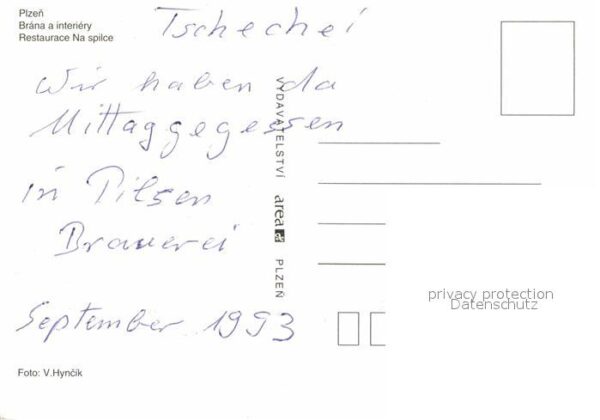 Plzeň
Brána a interiéry
Restaurace Na spilce
Tschechei
Wir haben da
Mittaggegessen
in Pilsen
Brauerei
September 1993
Foto: V.Hynčík
VYDAVATELSTVÍ area PLZEŇ
privacy protection
Datenschutz